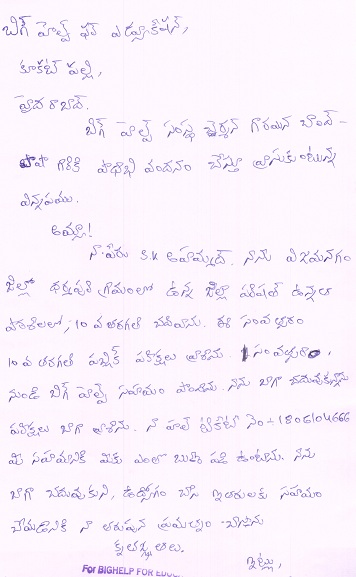 బిగ్ హెల్ప్ ఫర్ ఎడ్యూకేషన్,
కూకట్ పల్లి,
హైదరాబాద్.
బిగ్ హెల్ప్ సంస్థ ఛైర్మన్ గారయిన చాంద్ -
పాషా గారికి పాధాభి వందనం చేస్తూ వ్రాసుకుంటున్న
విన్నపము.
అమ్మా!
నా పేరు S.K అహమ్మద్. నాను విజయనగరం
జిల్లా ధర్మపురి గ్రామంలో ఉన్న జిల్లా పరిషత్ ఉన్నత
పాఠశాలలో, 10 వ తరగతి చదివాను. ఈ సంవత్సరం
10 వ తరగతి పబ్లిక్ పరీక్షలు వ్రాశాను. 1 సంవత్సరం,
నుండి బిగ్ హెల్ప్ సహాయం పొందాను. నాను బాగా చదువుకున్నాను
పరీక్షలు బాగా వ్రాశాను. నా హాల్ టికెట్ నెం 1806104666
మీ సహాయానికి మీకు ఎంతో ఋణ పడి ఉంటాను. నాను
బాగా చదువుకుని, ఉద్యోగం చేసి ఇతరులకు సహాయం
చేయడానికి నా తరుపున ప్రయత్నం చేస్తాను
కృతజ్ఞతలు.
ఇట్లు,
For BIGHELP FOR